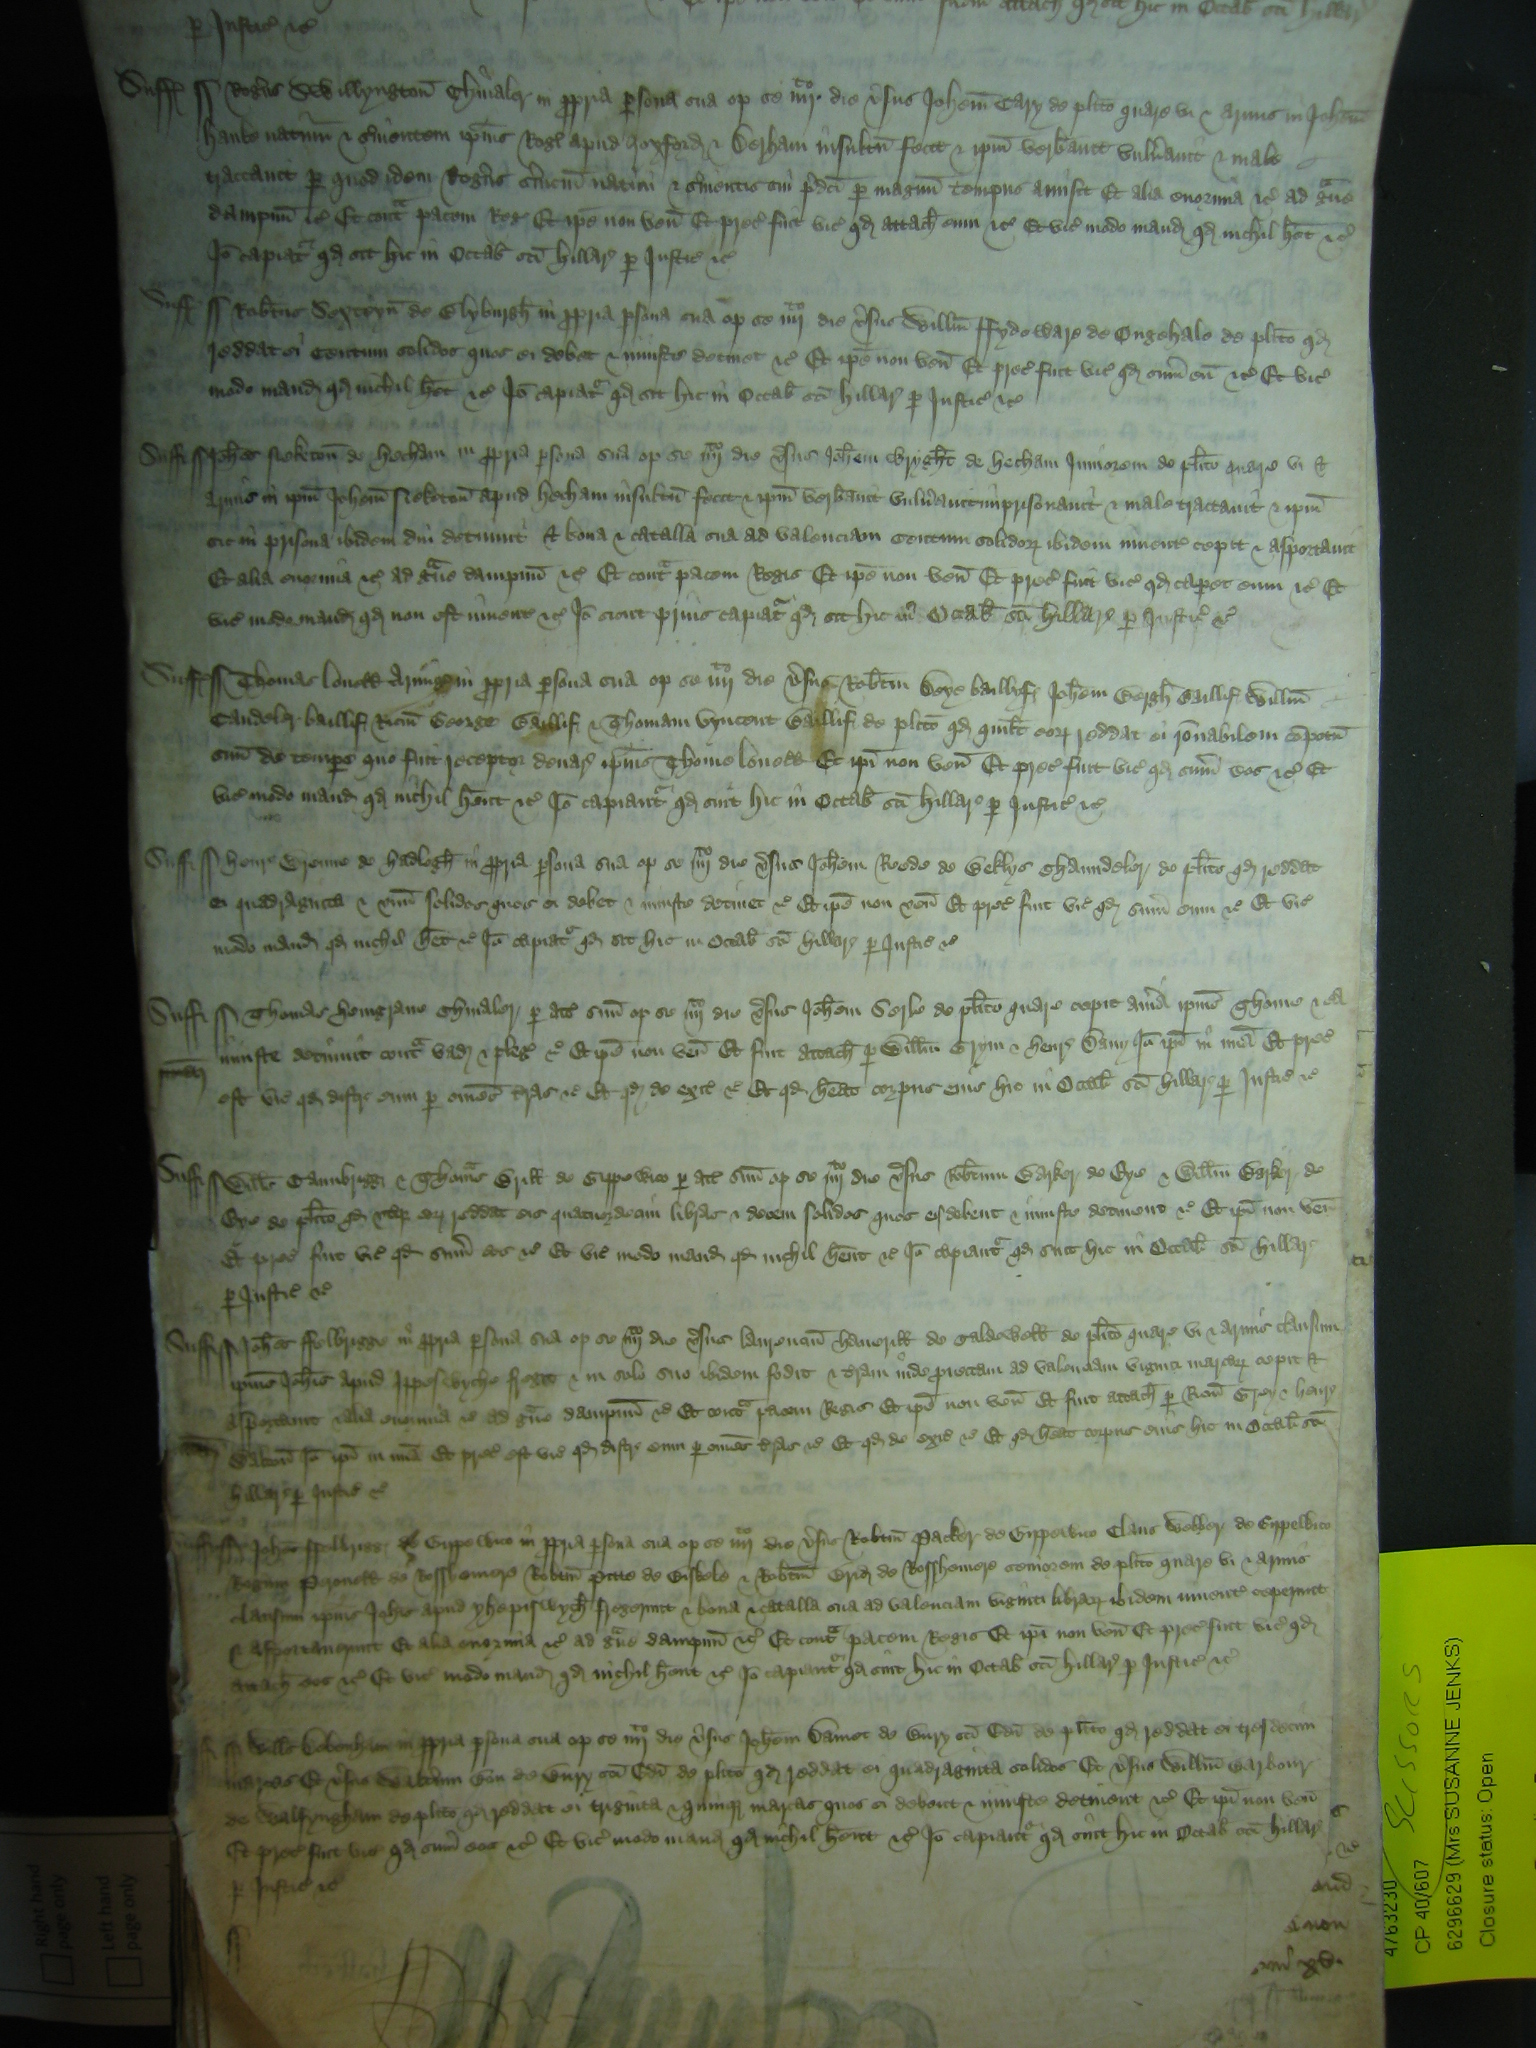 p Justic &c
Suff ss Rogerus Swillyngton Chivaler in propria persona sua op se iiij die versus Johem Cary de plito quare vi & armis in Johem
nativum & servientem ipius Rogi apud & insultum fecit & ipm verbavit vulnavit & male
tractavit per quod idem Rogerus servicium nativi & servientis sui pdci per magnum tempus amisit Et alia enormia &c ad gve
dampnum &c Et contra pacem Reg Et ipe non ven Et prec fuit vic qd attach eum &c Et vic modo mand qd nichil het &c
Jo capiatr qd sit hic in Octab sci Hillar p Justic &c
Suff ss Robtus de Slyburgh in propria persona sua op se iiij die versus Willm ffydeware de Ongehale de plito qd
reddat ei Centum solidos quos ei debet & iniuste detinet &c Et ipe non ven Et prec fuit vic qd sum eu &c Et vic
modo mand qd nichil het &c Jo capiatr qd sit hic in Octab sci Hillar p Justic &c
Suff ss Johes Noketon de Hecham in propria persona sua op se iiij die versus Johem Wryght de Hecham Juniorem de plito quare vi &
armis in ipm Johem Noketon apud Hecham insultum fecit & ipm verbavit vulnavit imprisonavit & male tractavit & ipm
sic in prisona ibidem diu detinuit & bona & catalla sua ad valenciam Centum solidor ibidem invent cepit & asportavit
Et alia enormia &c ad gve dampnum &c Et contra pacem Regis Et ipe non ven Et prec fuit vic qd caperet eum &c Et
vic modo mand qd non est invent &c Jo sicut prius capiatr qd sit hic in Octab sci Hillar p Justic &c
Suff ss Thomas Lovell Armig in propria persona sua op se iiij die versus Robtm Boye baillif Johem Bergh Baillif Willm
Candeler baillif Ricm George Baillif & Thomam Vyncent Baillif de plito qd quilt eor reddat ei ronabilem compotu
suu de tempe quo fuit receptor denar ipius Thome Lovell Et ipi non ven Et prec fuit vic qd sum eos &c Et
vic modo mand qd nichil hent &c Jo capiantr qd sint hic in Octab sci Hillar p Justic &c
Suff ss Henr de Hadlegh in propria persona sua op se iiij die versus Johem Rede de Beklys Chaundeler de plito qd reddat
ei quadraginta & solidos quos ei debet & iniuste detinet &c Et ipe non ven Et prec fuit vic qd sum eum &c Et vic
modo mand qd nichil het &c Jo capiatr qd sit hic in Octab sci Hillar p Justic &c
Suff ss Thomas Hengrave Chivaler p att suu op se iiij die versus Johem Serle de plito quare cepit ipius Thome & ea
iniuste detinuit contra vad & pleg &c Et ipe non ven Et fuit attach p Willm Grym & Henr Jo ipe in mia Et prec
est vic qd distr eum p omes tras &c Et qd de exit &c Et qd heat corpus eius hic in Octab sci Hillar p Justic &c
Suff ss Willms Caumbrigg & Thomas Brill de Gippewico p att suu op se iiij die versus Robtum Barker de Eye & Willm Barker de
Eye de plito qd uterq eor reddat eis quatuordecim libras & decem solidos quos eis debent & iniuste detinent &c Et ipi non ven
Et prec fuit vic qd sum eos &c Et vic modo mand qd nichil hent &c Jo capiantr qd sint hic in Octab sci Hillar
p Justic &c
Suff ss Johes ffelbrigge in propria persona sua op se iiij die versus Laurenciu de Caldewell de plito quare vi & armis clausum
ipius Johis apud Ippeswyche fregit & in solo suo ibidem fodit & tram inde proiectam ad valenciam viginti marcar cepit &
asportavit & alia enormia &c ad gve dampnum &c Et contra pacem Regis Et ipe non ven Et fuit attach p Ricm Grey & Henr
Walton Jo ipe in mia Et prec est vic qd distr eum p omes tras &c Et qd de exit &c Et qd heat corpus eius hic in Octab sci
Hillar p Justic &c
Suff ss Johes ffelbrigg de Gippewico in propria persona sua op se iiij die versus Robtm Packer de Gippewico Claus Webber de Gippewico
de Rossshemere Robtm Pitte de & Robtm de Rossshemere seniorem de plito quare vi & armis
clausum ipius Johis apud yhepiswych fregerunt & bona & catalla sua ad valenciam viginti librar ibidem invent ceperunt
& asportaverunt Et alia enormia &c ad gve dampnum &c Et contra pacem Regis Et ipi non ven Et prec fuit vic qd
attach eos &c Et vic modo mand qd nichil hent &c Jo capiantr qd sint hic in Octab sci Hillar p Justic &c
ss Willms in propria persona sua op se iiij die versus Johem de Bury sci Edi de plito qd reddat ei tresdecim
marcas Et versus de Bury sci Edi de plito qd reddat ei quadraginta solidos Et versus Willm Barbour
de Walsyngham de plito qd reddat ei triginta & quinq marcas quos ei debent & iniuste detinent &c Et ipi non ven
Et prec fuit vic qd sum eos &c Et vic modo mand qd nichil hent &c Jo capiantr qd sint hic in Octab sci Hillar
p Justic &c
Right hand
page only
Left hand
page only
4763230 SCISSORS
CP 40/607
6296629 (Mrs SUSANNE JENKS)
Closure status: Open